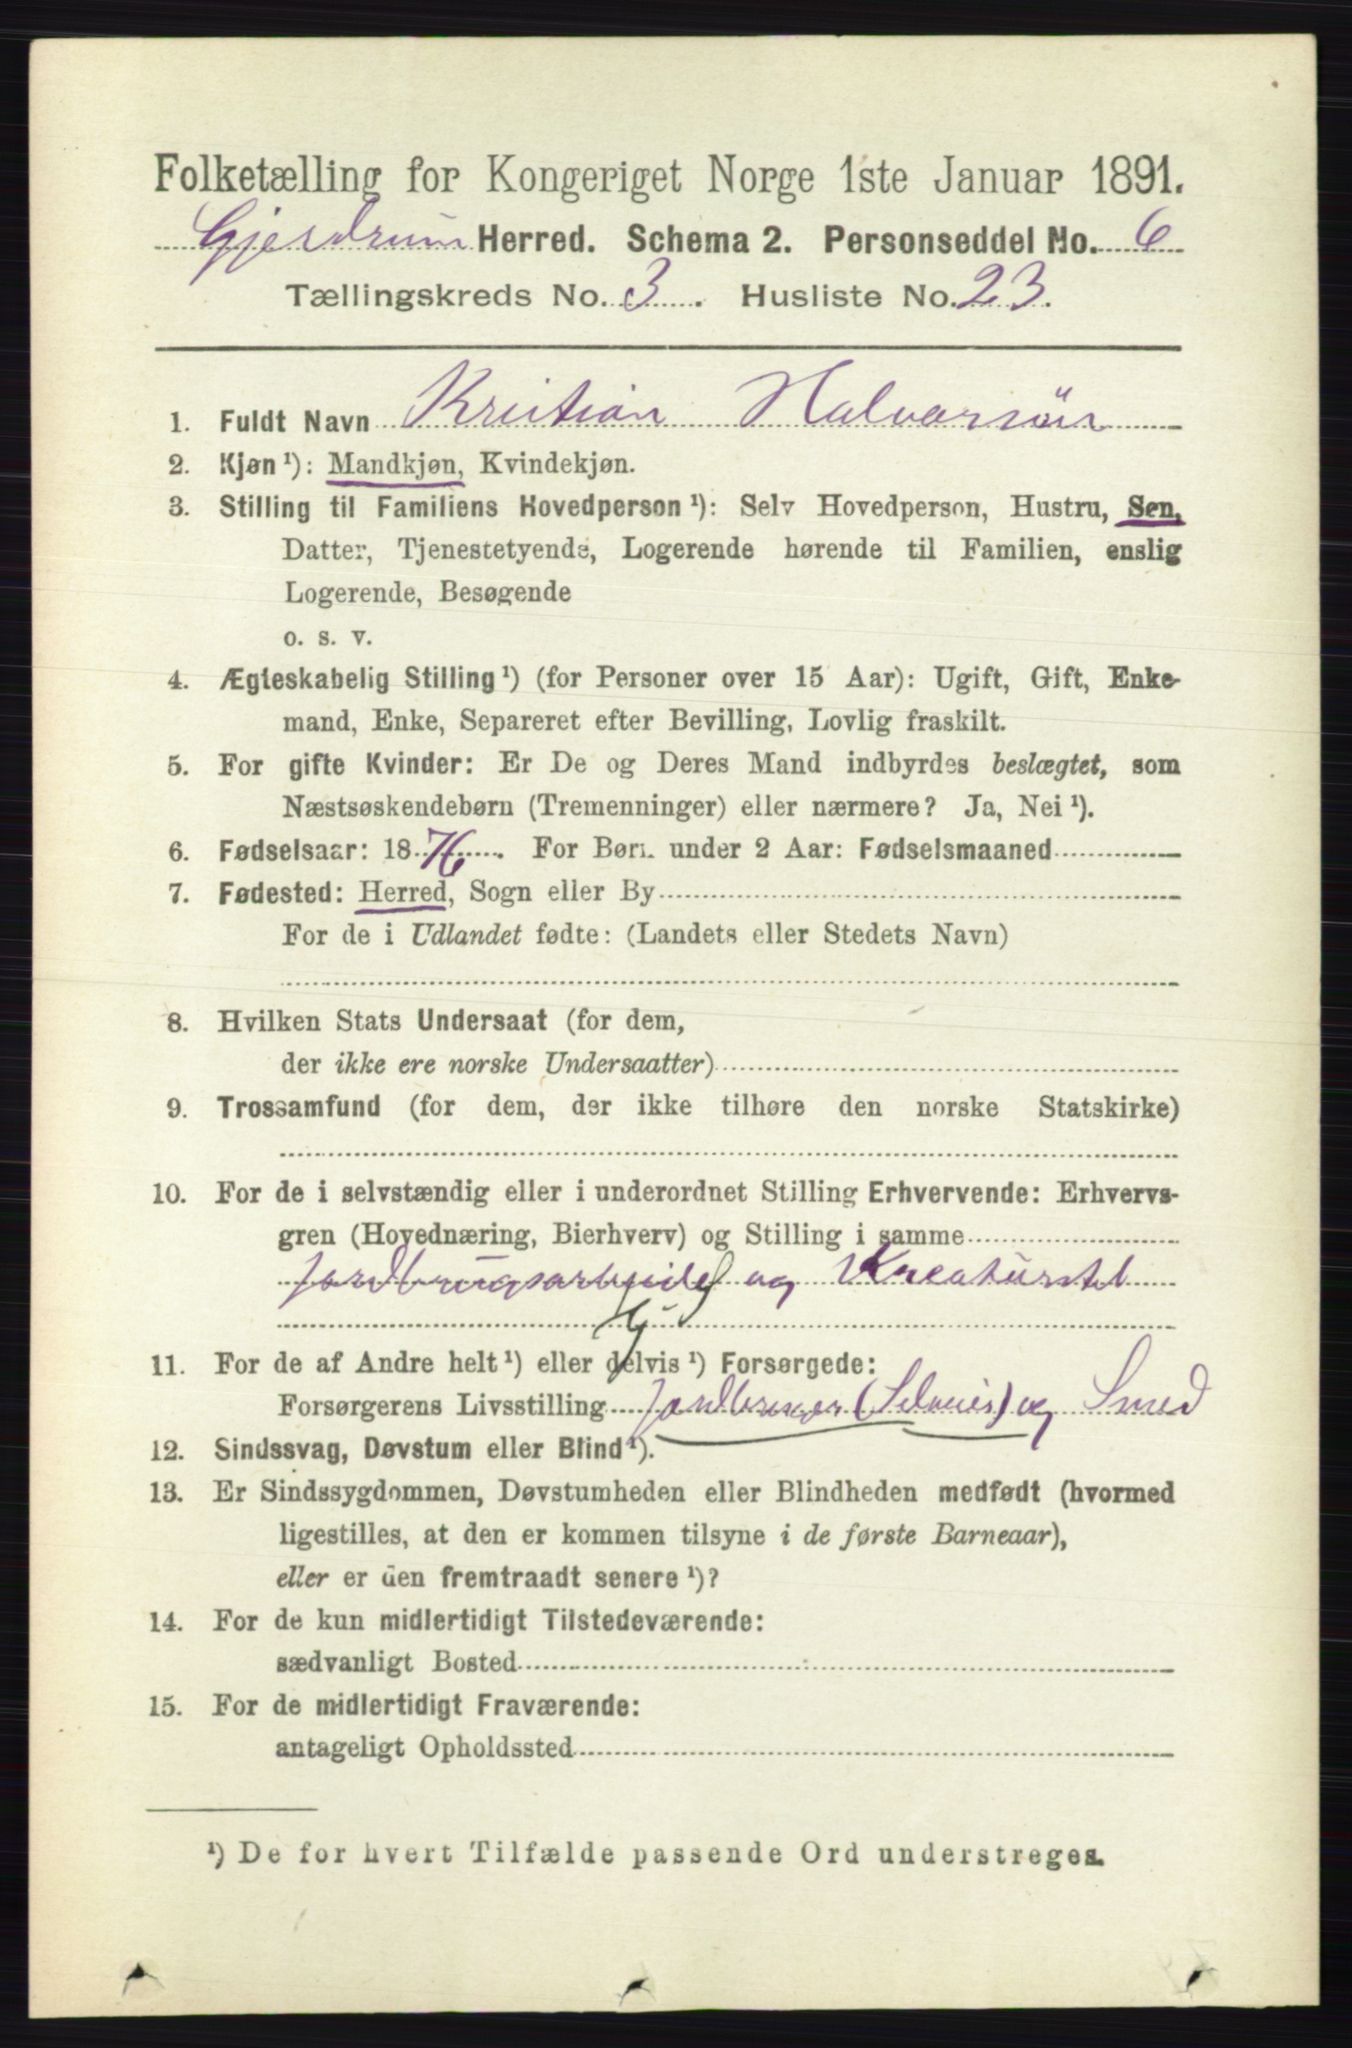 Folketælling for Kongeriget Norge 1ste Januar 1891.
Gjerdrum Herred. Schema 2. Personseddel No. 6
Tællingskreds No. 3. Husliste No. 23.
1. Fuldt Navn Kristian Halvorsön
2. Kjøn¹): Mandkjøn, Kvindekjøn.
3. Stilling til Familiens Hovedperson¹): Selv Hovedperson, Hustru, Søn,
Datter, Tjenestetyende, Logerende hørende til Familien, enslig
Logerende, Besøgende
o. s. v.
4. Ægteskabelig Stilling¹) (for Personer over 15 Aar): Ugift, Gift, Enke-
mand, Enke, Separeret efter Bevilling, Lovlig fraskilt.
5. For gifte Kvinder: Er De og Deres Mand indbyrdes beslægtet, som
Næstsøskendebørn (Tremenninger) eller nærmere? Ja, Nei¹).
6. Fødselsaar: 1876. For Børn under 2 Aar: Fødselsmaaned
7. Fødested: Herred, Sogn eller By
For de i Udlandet fødte: (Landets eller Stedets Navn)
8. Hvilken Stats Undersaat (for dem,
der ikke ere norske Undersaatter)
9. Trossamfund (for dem, der ikke tilhøre den norske Statskirke)
10. For de i selvstændig eller i underordnet Stilling Erhvervende: Erhvervs-
gren (Hovednæring, Bierhverv) og Stilling i samme
Jordbrugsarbeide og Kreaturstel
11. For de af Andre helt¹) eller delvis¹) Forsørgede:
Forsørgerens Livsstilling Jordbruger (Selveier) og Smed
12. Sindssvag, Døvstum eller Blind¹).
13. Er Sindssygdommen, Døvstumheden eller Blindheden medfødt (hvormed
ligestilles, at den er kommen tilsyne i de første Barneaar),
eller er den fremtraadt senere¹)?
14. For de kun midlertidigt Tilstedeværende:
sædvanligt Bosted
15. For de midlertidigt Fraværende:
antageligt Opholdssted
¹) De for hvert Tilfælde passende Ord understreges.